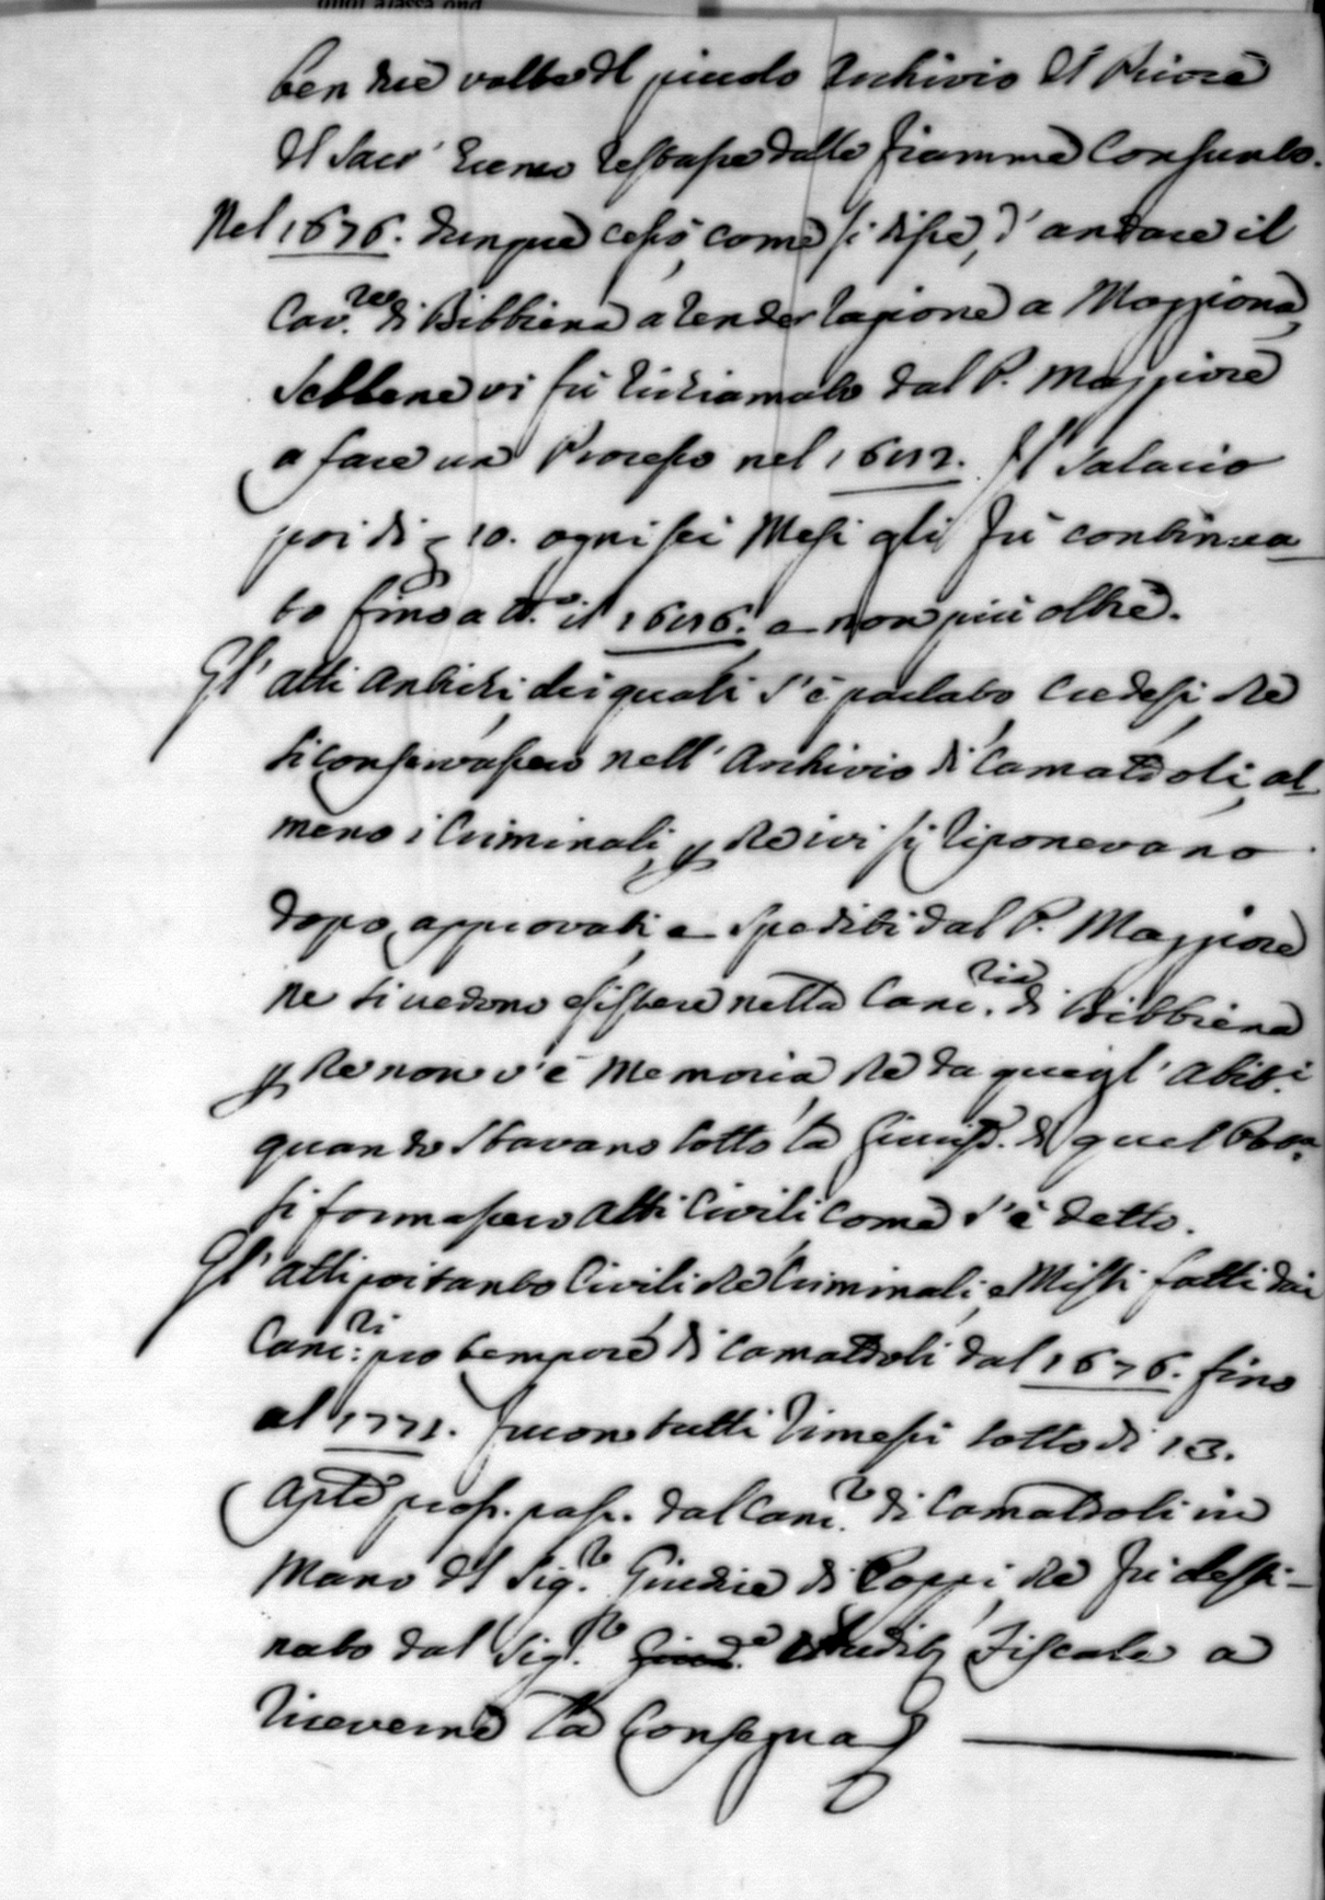 ben due volte il piccolo Archivio del Priore
del Sacr' Eremo restasse dalle fiamme Consunto.
Nel 1676. dunque cessò, come si disse, d'andare il
Canc.re di Bibbiena a render ragione a Moggiona,
Sebbene vi fù richiamato dal P. Maggiore
a fare un Processo nel 1692. Il Salario
poi di 10. ogni sei Mesi gli fù continua
to fino a tt.o il 1696. e non più oltre.
Gl' atti Antichi, dei quali s'è parlato, Credesi, che
si conservassero nell' Archivio di Camaldoli, al
meno i Criminali, p che ivi si riponevano
dopo approvati, e Spediti dal P. Maggiore
ne si vedono esistere nella Canc.ria di Bibbiena
p che non v'è Memoria, che da quegl' Abit.i
quando Stavano sotto la Giurisd. di quel
si formassero Atti Civili, come s'è detto.
Gl' atti poi tanto Civili che Criminali, e Misti fatti dai
Canc:ri pro tempore di Camaldoli dal 1676. fino
al 1771. furono tutti rimessi sotto dì 13.
Aple pross. pass. dal Canc.re di Camaldoli in
Mano del Sig.re Giudice di Poppi, che fù desti-
nato dal Sig.re Audit Fiscale a
riceverne la Consegna